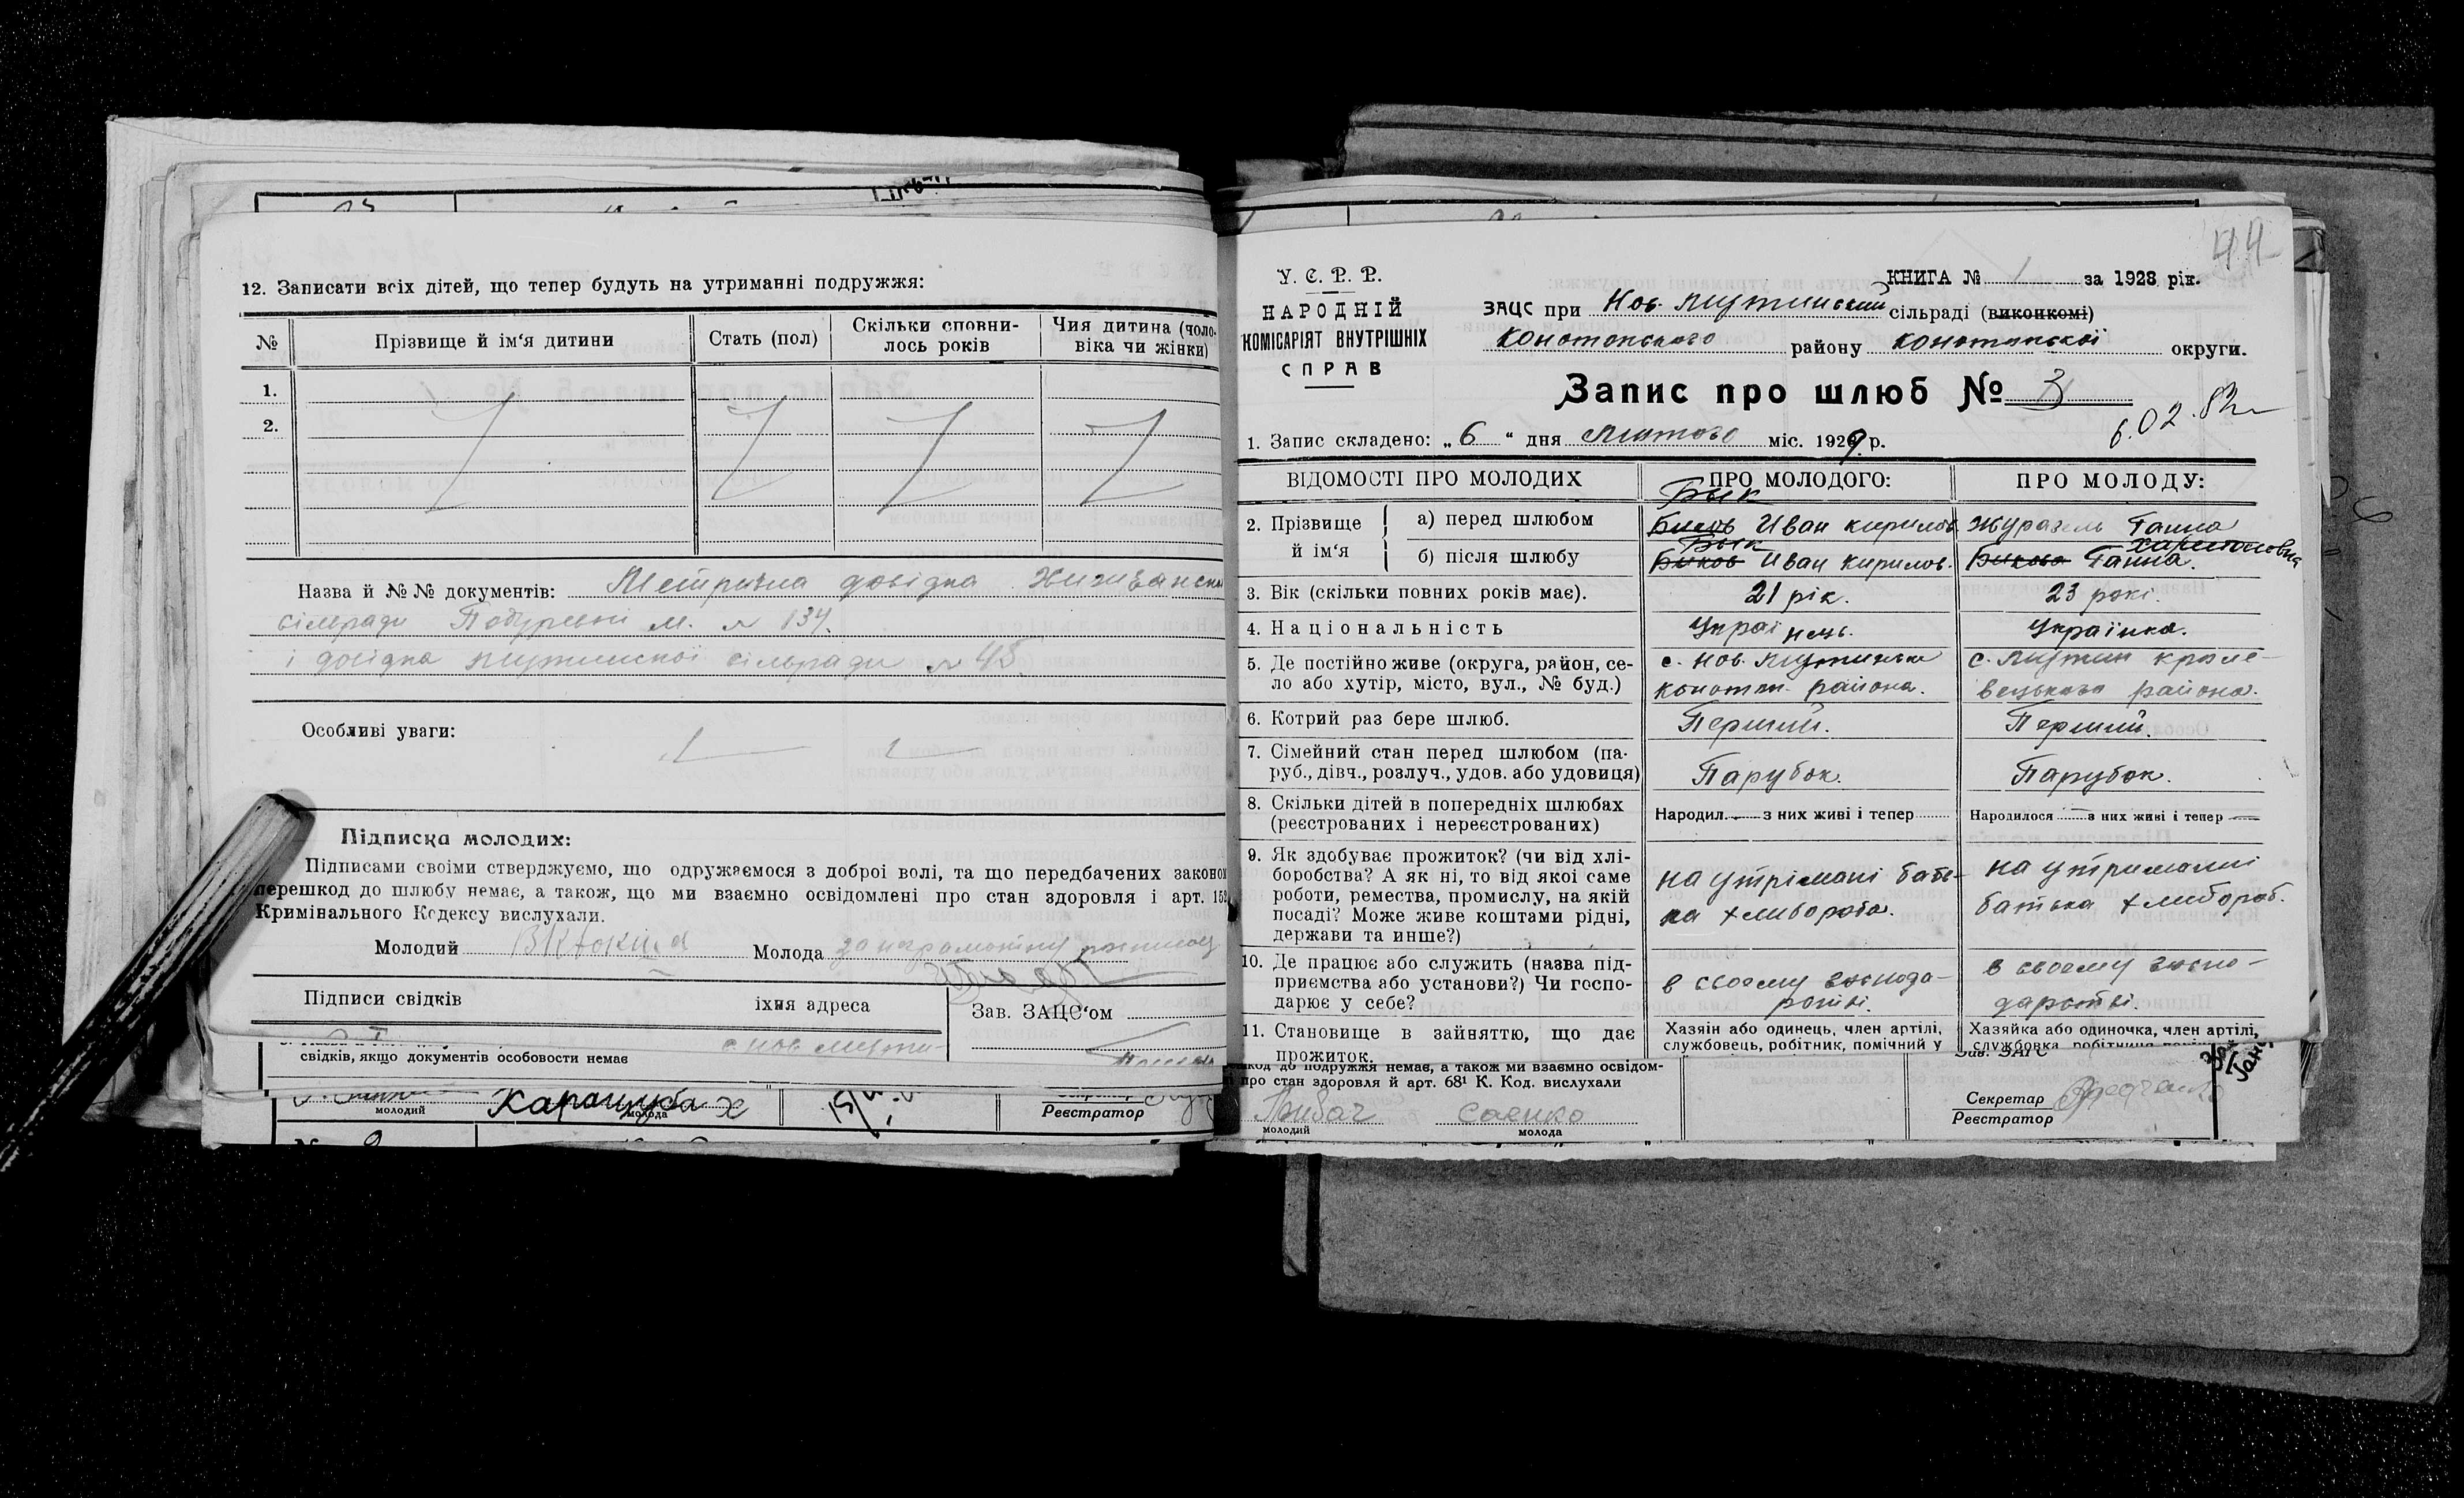 12. Записати всіх дітей, що тепер будуть на утриманні подружжя:
№
Прізвище й ім‘я дитини
Стать (пол)
Скільки сповни-
лось років
Чия дитина (чоло-
віка чи жінки)
1.
2.
Назва й №№ документів: Метрична довідка
сільради м. № 134.
і довідка сільради № 45
Особливі уваги:
Підписка молодих:
Підписами своіми стверджуємо, що одружаємося з доброі волі, та що передбачених законом
перешкод до шлюбу немає, а також, що ми взаємно освідомлені про стан здоровля і арт. 152
Кримінального Кодексу вислухали.
Молодий
Молода
Підписи свідків
іхня адреса
Зав. ЗАЦС‘ом
свідків, якщо документів особовости немає
молодий
Карацуба х
молода
Реєстратор
44
У. С. Р. Р.
НАРОДНІЙ
КОМІСАРІЯТ ВНУТРІШНІХ
СПРАВ
КНИГА № 1 за 1928 рік.
ЗАЦС при Нов. Мутинський сільраді (виконкомі)
Конотопського району Конотопської округи.
Запис про шлюб № 3
6.02.82
1. Запис складено: „6“ дня Лютого міс. 1929 р.
ВІДОМОСТІ ПРО МОЛОДИХ
ПРО МОЛОДОГО:
ПРО МОЛОДУ:
2. Прізвище
й ім‘я
а) перед шлюбом
Бык
Биков Иван Кирилов.
Журавель Ганна
Харитоновна
б) після шлюбу
Бык
Биков Иван Кирилов.
Бикова Ганна.
3. Вік (скільки повних років має).
21 рік.
23 рокі.
4. Національність
Українець.
Українка.
5. Де постійно живе (округа, район, се-
ло або хутір, місто, вул., № буд.)
с. Нов. Мутинськ
Конотоп. района.
с. Мутин Кроле-
вецького района.
6. Котрий раз бере шлюб.
Перший.
Перший.
7. Сімейний стан перед шлюбом (па-
руб., дівч., розлуч., удов. або удовиця)
Парубок.
Парубок.
8. Скільки дітей в попередніх шлюбах
(реєстрованих і нереєстрованих)
Народил. — з них живі і тепер
Народилося — з них живі і тепер —
9. Як здобуває прожиток? (чи від хлі-
боробства? А як ні, то від якоі саме
роботи, ремества, промислу, на якій
посаді? Може живе коштами рідні,
держави та инше?)
на утрімані бать-
ка хлибороба.
на утриманні
батька хлибороб.
10. Де працює або служить (назва під-
приємства або установи?) Чи госпо-
дарює у себе?
в своєму господа-
рстві.
в своєму госпо-
дарстві.
11. Становище в зайняттю, що дає
прожиток.
Хазяін або одинець, член артілі,
службовець, робітник, помічний у
Хазяйка або одиночка, член артілі,
службовка робітниця
перешкод до подружжя немає, а також ми взаємно освідом-
про стан здоровля й арт. 68¹ К. Код. вислухали
молодий
Саенко
молода
Зав. ЗАГС
Секретар
Реєстратор